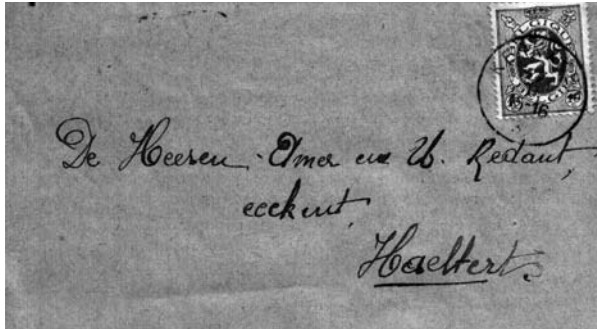 BELGIQUE
BELGIË
De Heeren Omer en U. Redant,
eeckent
Haeltert.